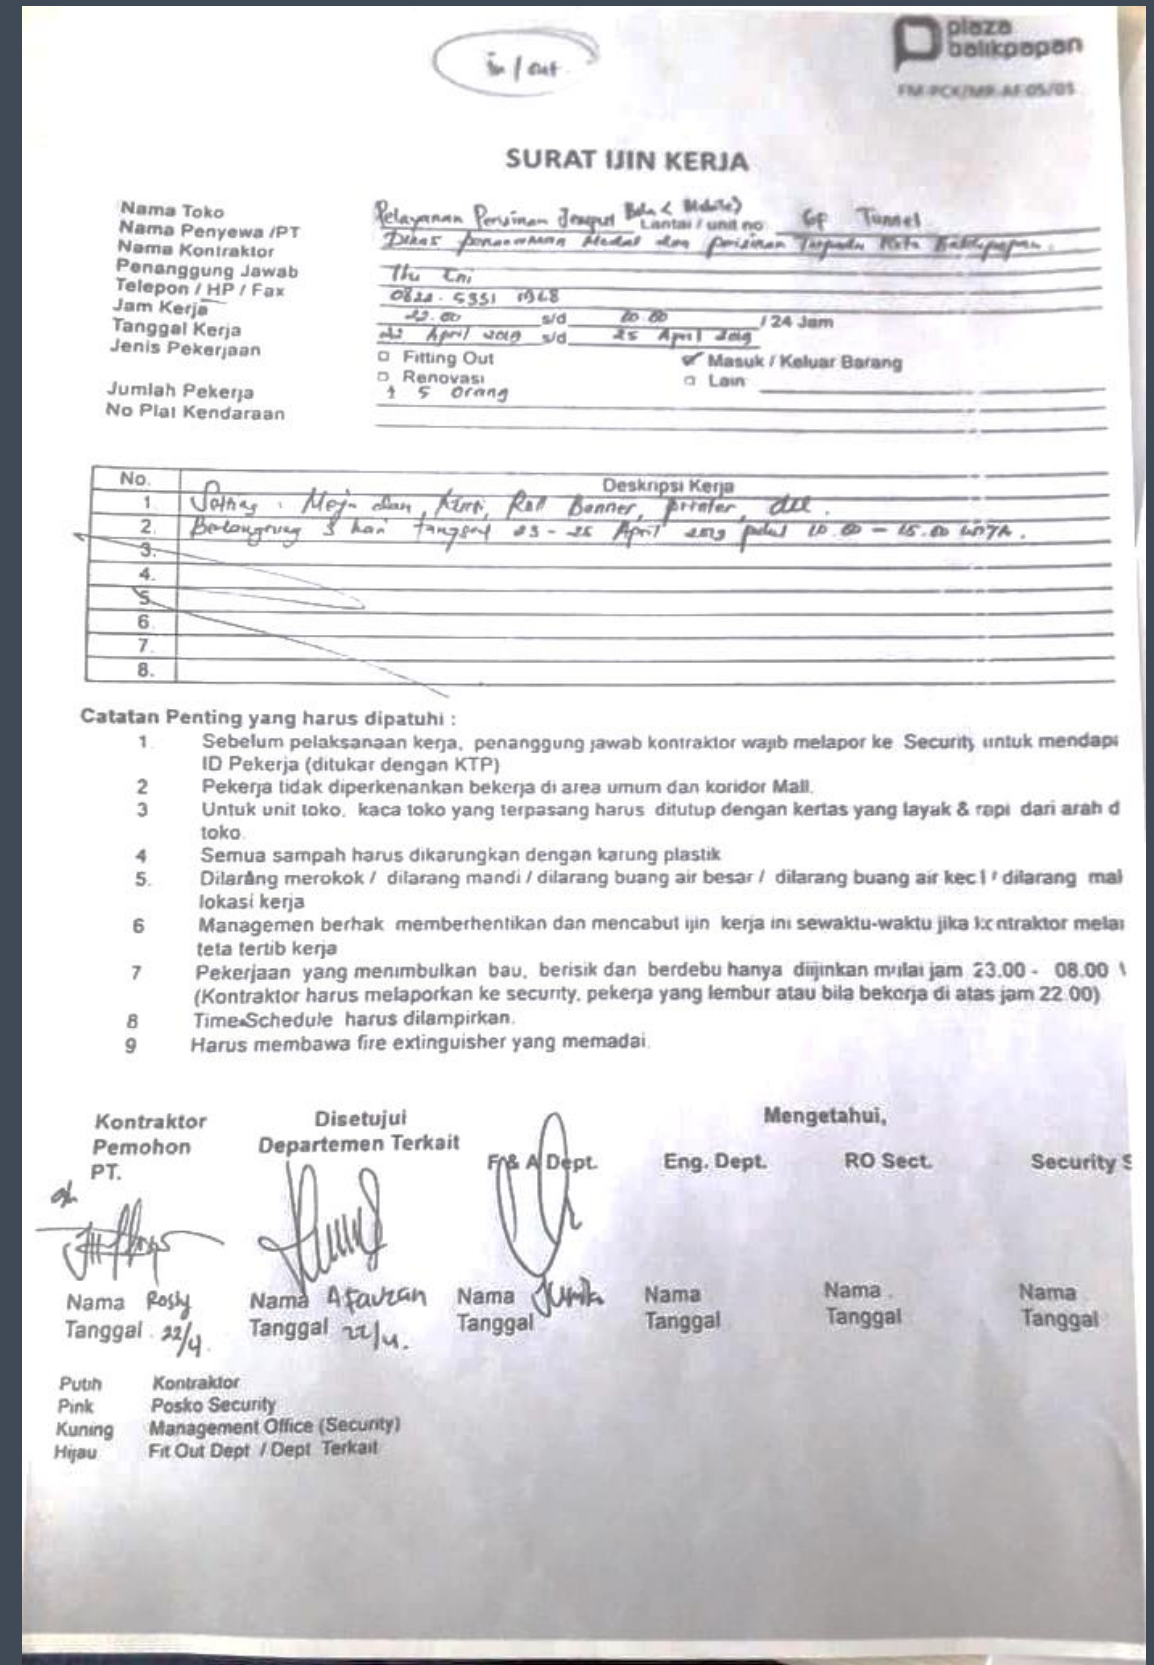 in / out
plaza
balikpapan
FM-PCK/MP-AF-05/01
SURAT IJIN KERJA
Nama Toko Pelayanan Perizinan Jemput Bola ( Mobile) Lantai / unit no GF Tunnel
Nama Penyewa /PT Dinas Penanaman Modal dan perizinan Terpadu Kota Balikpapan.
Nama Kontraktor
Penanggung Jawab Eni
Telepon / HP / Fax 0822 - 5351 1968
Jam Kerja 22.00 s/d 10.00 / 24 Jam
Tanggal Kerja 22 April 2019 s/d 25 April 2019
Jenis Pekerjaan Fitting Out Masuk / Keluar Barang
Renovasi Lain
Jumlah Pekerja 5 orang
No Plat Kendaraan
No. Deskripsi Kerja
1. Setting : Meja dan Kursi, Roll Banner, printer, dll.
2. Berlangsung 3 hari tanggal 23 - 25 April 2019 pukul 10.00 - 15.00 WITA.
3.
4.
5.
6.
7.
8.
Catatan Penting yang harus dipatuhi :
1. Sebelum pelaksanaan kerja, penanggung jawab kontraktor wajib melapor ke Security untuk mendapa
ID Pekerja (ditukar dengan KTP)
2 Pekerja tidak diperkenankan bekerja di area umum dan koridor Mall.
3 Untuk unit toko, kaca toko yang terpasang harus ditutup dengan kertas yang layak & rapi dari arah d
toko.
4 Semua sampah harus dikarungkan dengan karung plastik
5. Dilarang merokok / dilarang mandi / dilarang buang air besar / dilarang buang air kecil / dilarang mal
lokasi kerja
6 Managemen berhak memberhentikan dan mencabut ijin kerja ini sewaktu-waktu jika kontraktor melan
teta tertib kerja
7 Pekerjaan yang menimbulkan bau, berisik dan berdebu hanya diijinkan mulai jam 23.00 - 08.00
(Kontraktor harus melaporkan ke security, pekerja yang lembur atau bila bekerja di atas jam 22.00)
8 Time Schedule harus dilampirkan.
9 Harus membawa fire extinguisher yang memadai.
Kontraktor Disetujui Mengetahui,
Pemohon Departemen Terkait F & A Dept. Eng. Dept. RO Sect. Security S
PT.
Nama Rosly Nama Afauzan Nama Nama Nama Nama
Tanggal 22/4. Tanggal 22/4. Tanggal Tanggal Tanggal Tanggal
Putih Kontraktor
Pink Posko Security
Kuning Management Office (Security)
Hijau Fit Out Dept / Dept Terkait